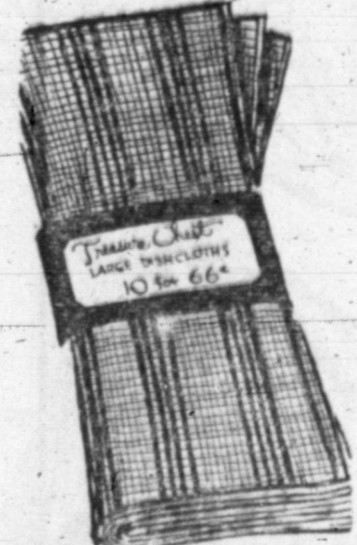 Treasure Chest
LARGE DISHCLOTHS
10 for 66¢